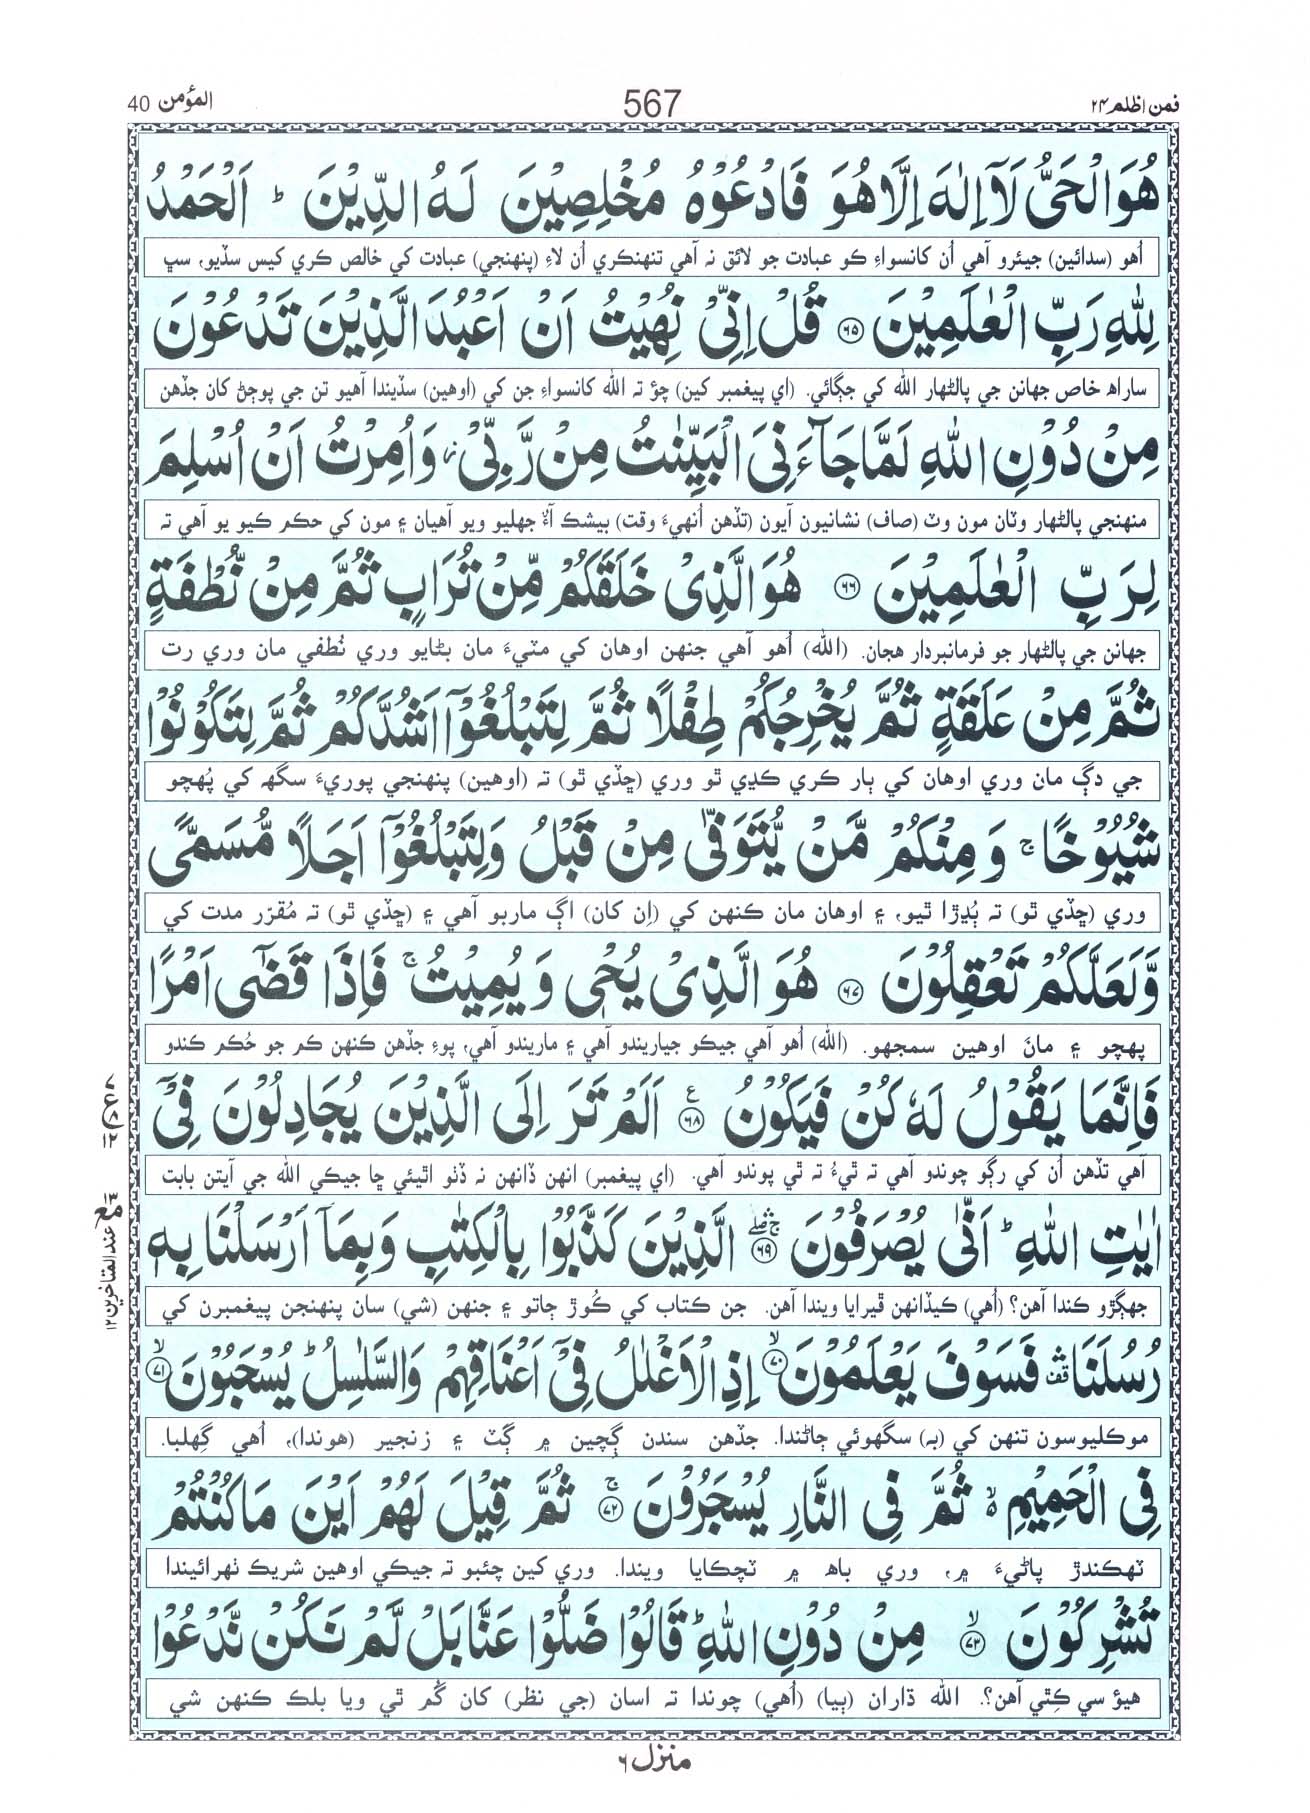 فمن اظلم ۲۴
567
المؤمن 40
هُوَ الْحَیُّ لَاۤ اِلٰهَ اِلَّا هُوَ فَادْعُوْهُ مُخْلِصِیْنَ لَهُ الدِّیْنَ ؕ اَلْحَمْدُ
اُهو (سدائين) جيئرو آهي اُن کانسواءِ ڪو عبادت جو لائق نہ آهي تنھنڪري اُن لاءِ (پنھنجي) عبادت کي خالص ڪري کيس سڏيو، سڀ
لِلّٰهِ رَبِّ الْعٰلَمِیْنَ ﴿۶۵﴾ قُلْ اِنِّیْ نُهِیْتُ اَنْ اَعْبُدَ الَّذِیْنَ تَدْعُوْنَ
ساراھ خاص جھانن جي پالڻھار الله کي جڳائي. (اي پيغمبر کين) چؤ تہ الله کانسواءِ جن کي (اوھين) سڏيندا آھيو تن جي پوڄڻ کان جڏھن
مِنْ دُوْنِ اللّٰهِ لَمَّا جَآءَنِیَ الْبَیِّنٰتُ مِنْ رَّبِّیْ ؗ وَ اُمِرْتُ اَنْ اُسْلِمَ
منھنجي پالڻھار وٽان مون وٽ (صاف) نشانيون آيون (تڏھن اُنھيءَ وقت) بيشڪ آءٌ جھليو ويو آھيان ۽ مون کي حڪم ڪيو يو آھي تہ
لِرَبِّ الْعٰلَمِیْنَ ﴿۶۶﴾ هُوَ الَّذِیْ خَلَقَكُمْ مِّنْ تُرَابٍ ثُمَّ مِنْ نُّطْفَةٍ
جھانن جي پالڻھار جو فرمانبردار ھجان. (الله) اُھو آھي جنھن اوھان کي مٽيءَ مان بڻايو وري نُطفي مان وري رت
ثُمَّ مِنْ عَلَقَةٍ ثُمَّ یُخْرِجُكُمْ طِفْلًا ثُمَّ لِتَبْلُغُوْۤا اَشُدَّكُمْ ثُمَّ لِتَكُوْنُوْا
جي دڳ مان وري اوھان کي ٻار ڪري ڪڍي ٿو وري (ڇڏي ٿو) تہ (اوھين) پنھنجي پوريءَ سگھہ کي پُھچو
شُیُوْخًا ۚ وَ مِنْكُمْ مَّنْ یُّتَوَفّٰی مِنْ قَبْلُ وَ لِتَبْلُغُوْۤا اَجَلًا مُّسَمًّی
وري (ڇڏي ٿو) تہ ٻُڍڙا ٿيو، ۽ اوھان مان ڪنھن کي (اِن کان) اڳ ماربو آھي ۽ (ڇڏي ٿو) تہ مُقرّر مدت کي
وَّ لَعَلَّكُمْ تَعْقِلُوْنَ ﴿۶۷﴾ هُوَ الَّذِیْ یُحْیٖ وَ یُمِیْتُ ۚ فَاِذَا قَضٰۤی اَمْرًا
پھچو ۽ مانَ اوھين سمجھو. (الله) اُھو آھي جيڪو جياريندو آھي ۽ ماريندو آھي، پوءِ جڏھن ڪنھن ڪم جو حُڪم ڪندو
فَاِنَّمَا یَقُوْلُ لَهٗ كُنْ فَیَكُوْنُ ﴿۶۸﴾ ع اَلَمْ تَرَ اِلَی الَّذِیْنَ یُجَادِلُوْنَ فِیْۤ
آھي تڏھن اُن کي رڳو چوندو آھي تہ ٿيءُ تہ ٿي پوندو آھي. (اي پيغمبر) انھن ڏانھن نہ ڏٺو اٿيئي ڇا جيڪي الله جي آيتن بابت
اٰیٰتِ اللّٰهِ ؕ اَنّٰی یُصْرَفُوْنَ ﴿۶۹﴾ الَّذِیْنَ كَذَّبُوْا بِالْكِتٰبِ وَ بِمَاۤ اَرْسَلْنَا بِهٖ
جھڳڙو ڪندا آھن؟ (اُھي) ڪيڏانھن ڦيرايا ويندا آھن. جن ڪتاب کي ڪُوڙ ڄاتو ۽ جنھن (شي) سان پنھنجن پيغمبرن کي
رُسُلَنَا ۛ۫ فَسَوْفَ یَعْلَمُوْنَ ﴿۷۰﴾ اِذِ الْاَغْلٰلُ فِیْۤ اَعْنَاقِهِمْ وَ السَّلٰسِلُ ؕ یُسْحَبُوْنَ ﴿۷۱﴾
موڪليوسون تنھن کي (بہ) سگھوئي ڄاڻندا. جڏھن سندن ڳچين ۾ ڳَٽَ ۽ زنجير (ھوندا)، اُھي گھِلبا.
فِی الْحَمِیْمِ ۙ ثُمَّ فِی النَّارِ یُسْجَرُوْنَ ﴿۷۲﴾ ثُمَّ قِیْلَ لَهُمْ اَیْنَ مَا كُنْتُمْ
ٽھڪندڙ پاڻيءَ ۾، وري باھ ۾ ٽچڪايا ويندا. وري کين چئبو تہ جيڪي اوھين شريڪ ٺھرائيندا
تُشْرِكُوْنَ ﴿۷۳﴾ مِنْ دُوْنِ اللّٰهِ ؕ قَالُوْا ضَلُّوْا عَنَّا بَلْ لَّمْ نَكُنْ نَّدْعُوْا
ھيؤ سي ڪٿي آھن؟. الله ڌاران (ٻيا) (اُھي) چوندا تہ اسان (جي نظر) کان گُم ٿي ويا بلڪ ڪنھن شي
منزل ۶
عند المتاخرين ۱۲